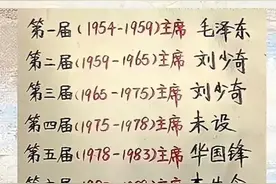 第一届(1954-1959)主席 毛泽东
第二届(1959-1965)主席 刘少奇
第三届(1965-1975)主席 刘少奇
第四届(1975-1978)主席 未设
第五届(1978-1983)主席 华国锋